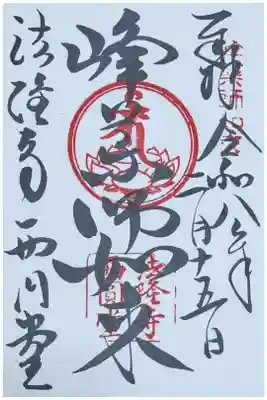 奉拝 令和八年
二月十五日
峰薬師如来
法隆寺 西円堂
法隆寺
西圓堂